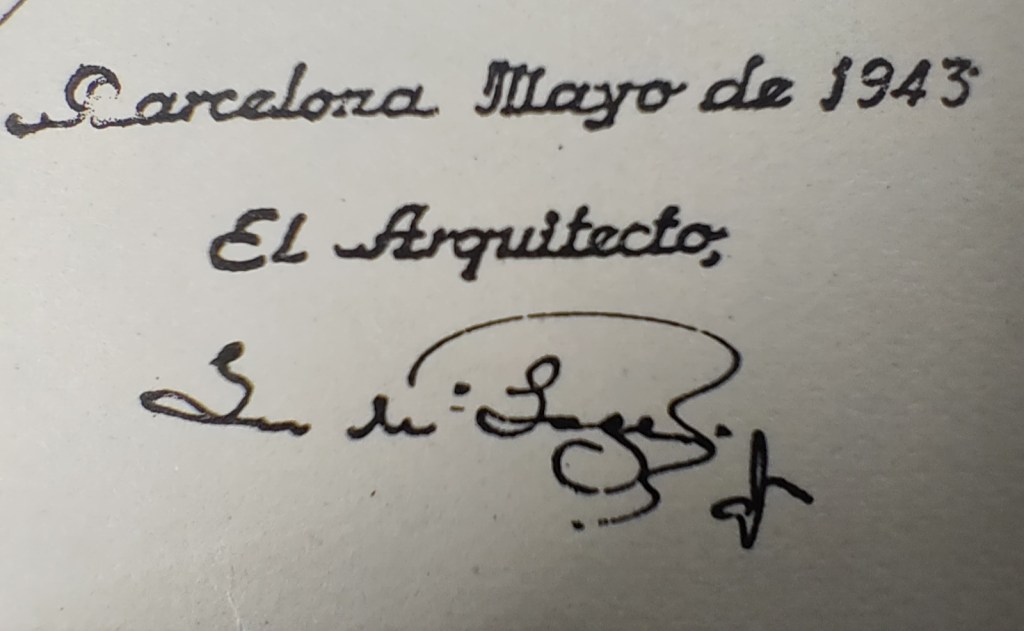 Barcelona Mayo de 1943
El Arquitecto,